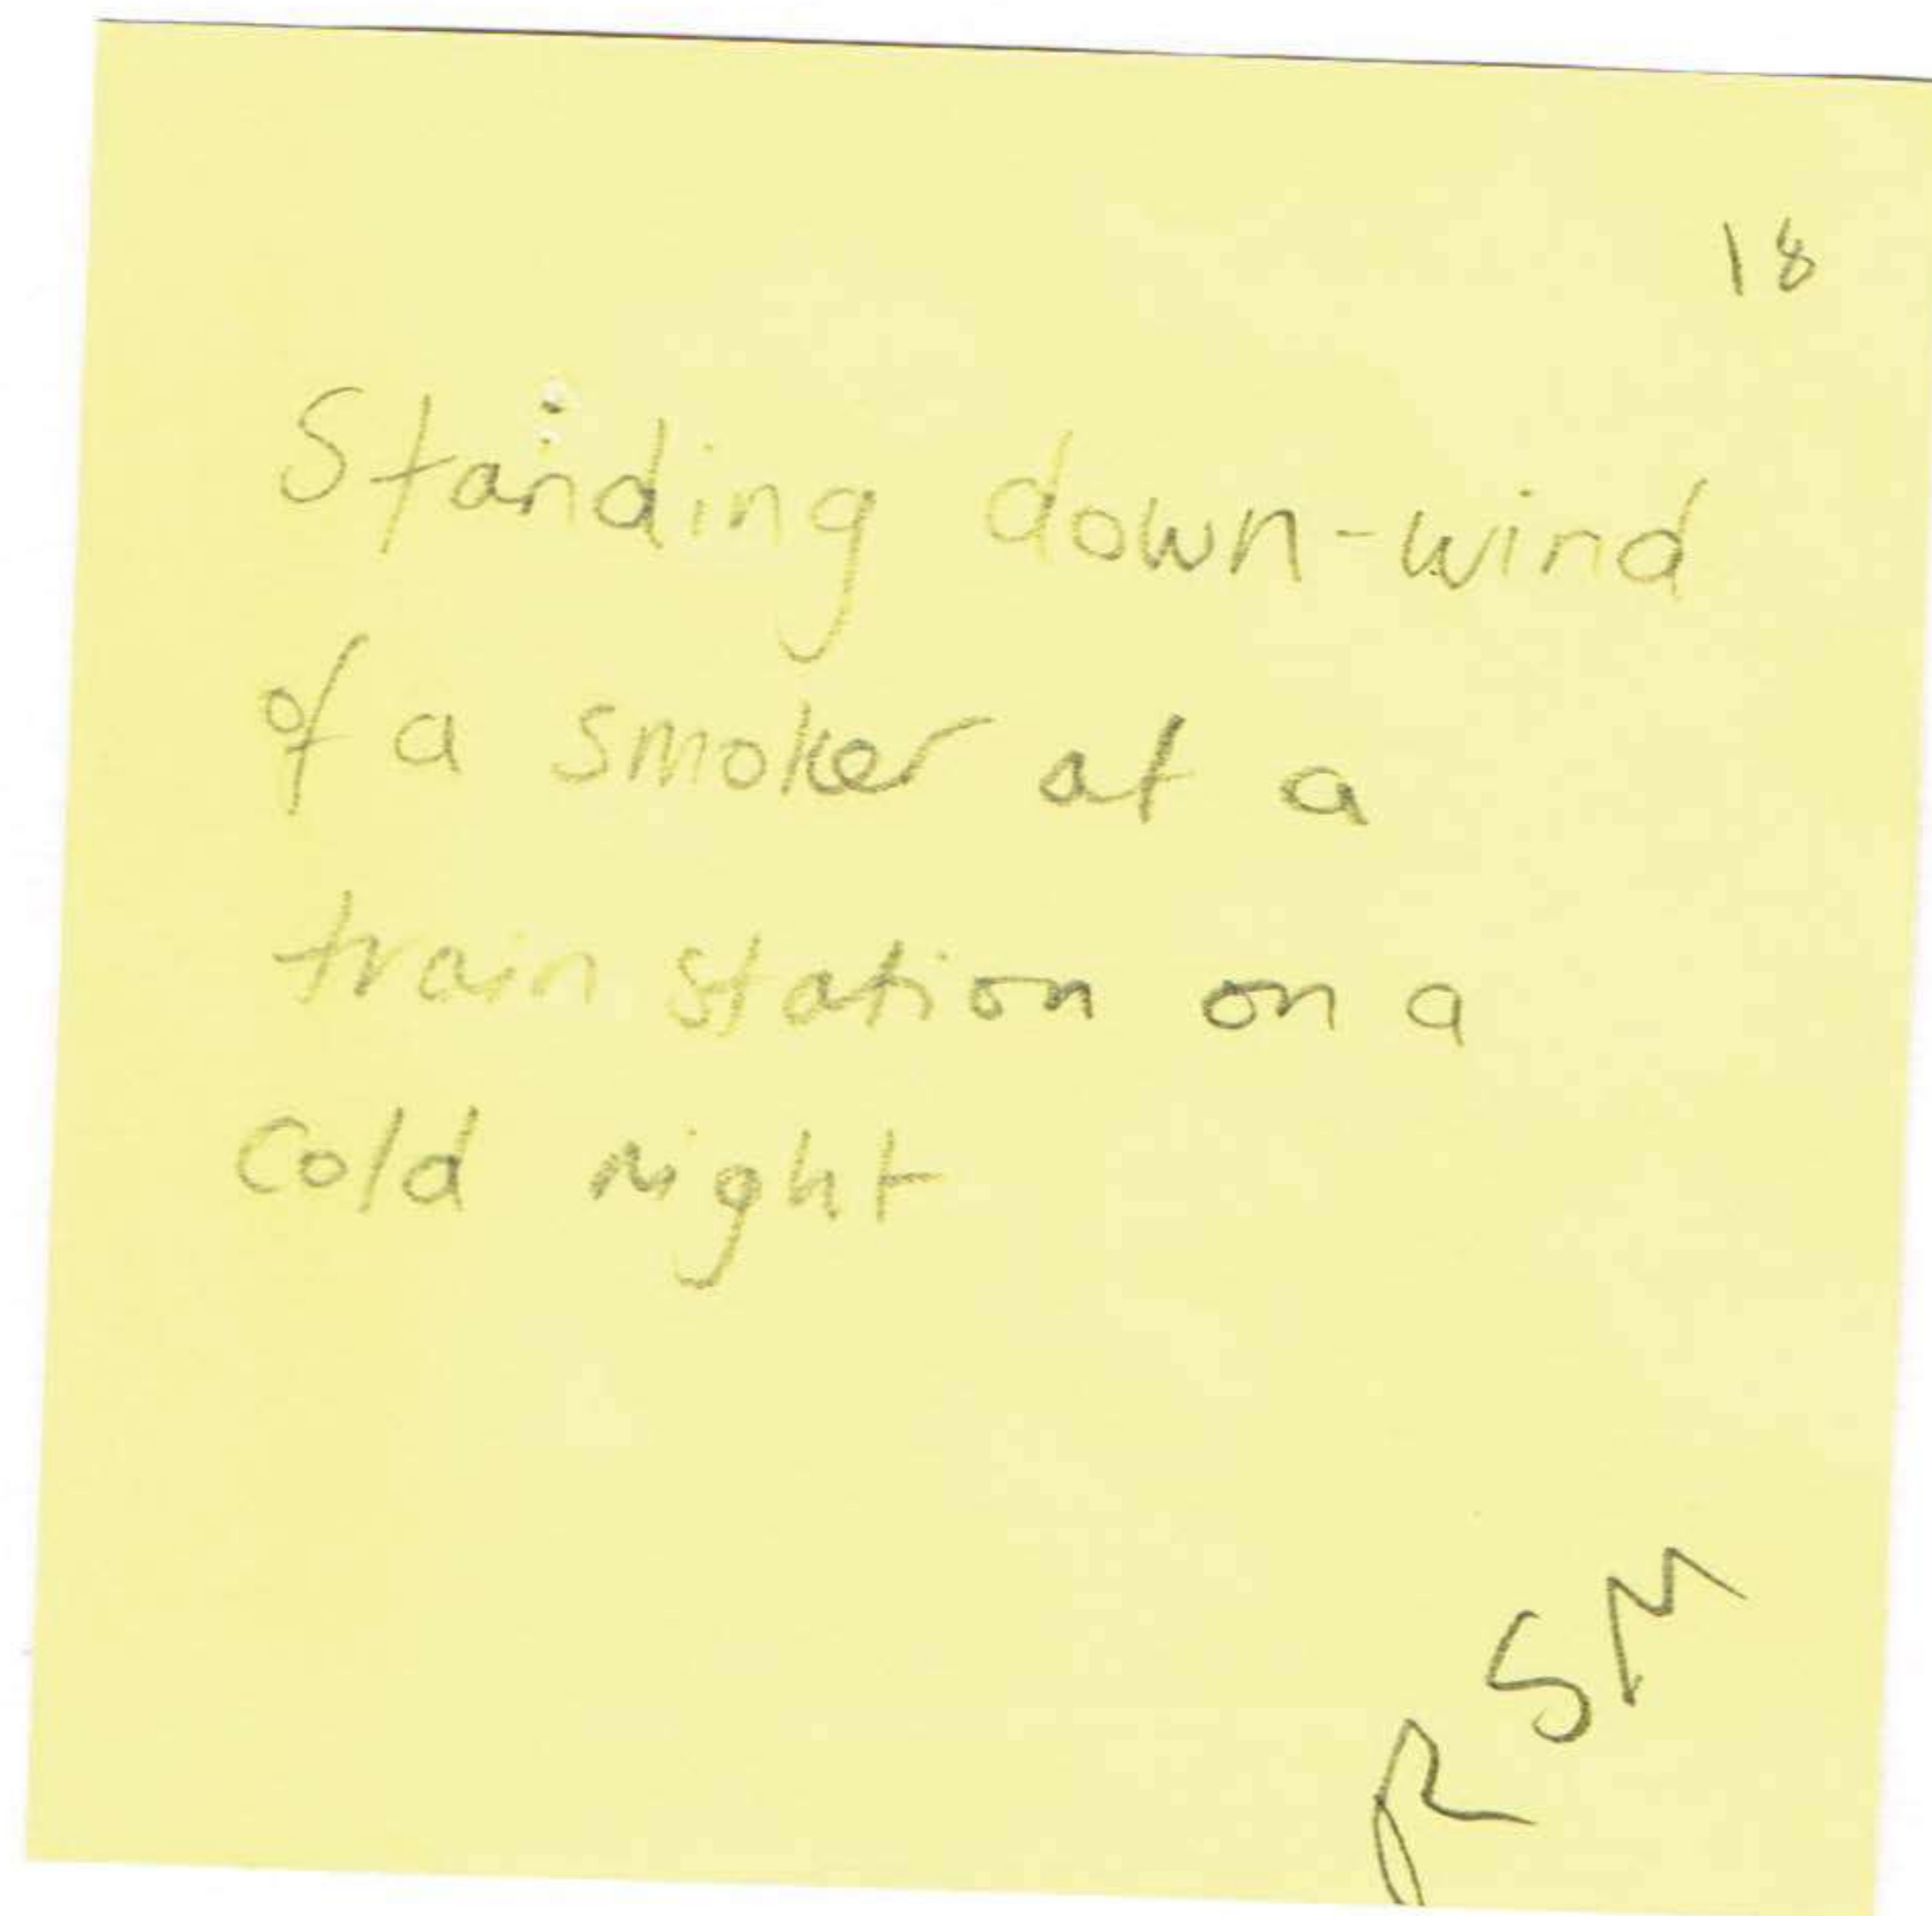 18
Standing down-wind
of a smoker at a
train station on a
cold night
RSM